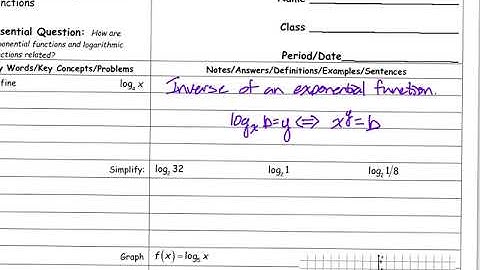 nctions
Name
sential Question: How are
Class
ponential functions and logarithmic
ctions related?
Period/Date
y Words/Key Concepts/Problems
Notes/Answers/Definitions/Examples/Sentences
fine logₐ x
Inverse of an exponential function.
logₓ b=y ⟺ xʸ=b
Simplify: log₂ 32 log₂ 1 log₂ 1/8
Graph f(x)=log₅ x